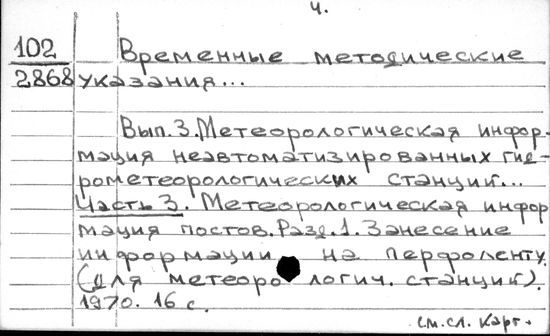 4.
102
2868
Временные методические
указания...
Вып.3. Метеорологическая инфор-
мация неавтоматизированных гид-
рометеорологических станций...
Часть 3. Метеорологическая инфор
мация постов. Разд.1. Занесение
информации на перфоленту.
(для метеорологич. станций).
1970. 16 с.
см.сл. карт.